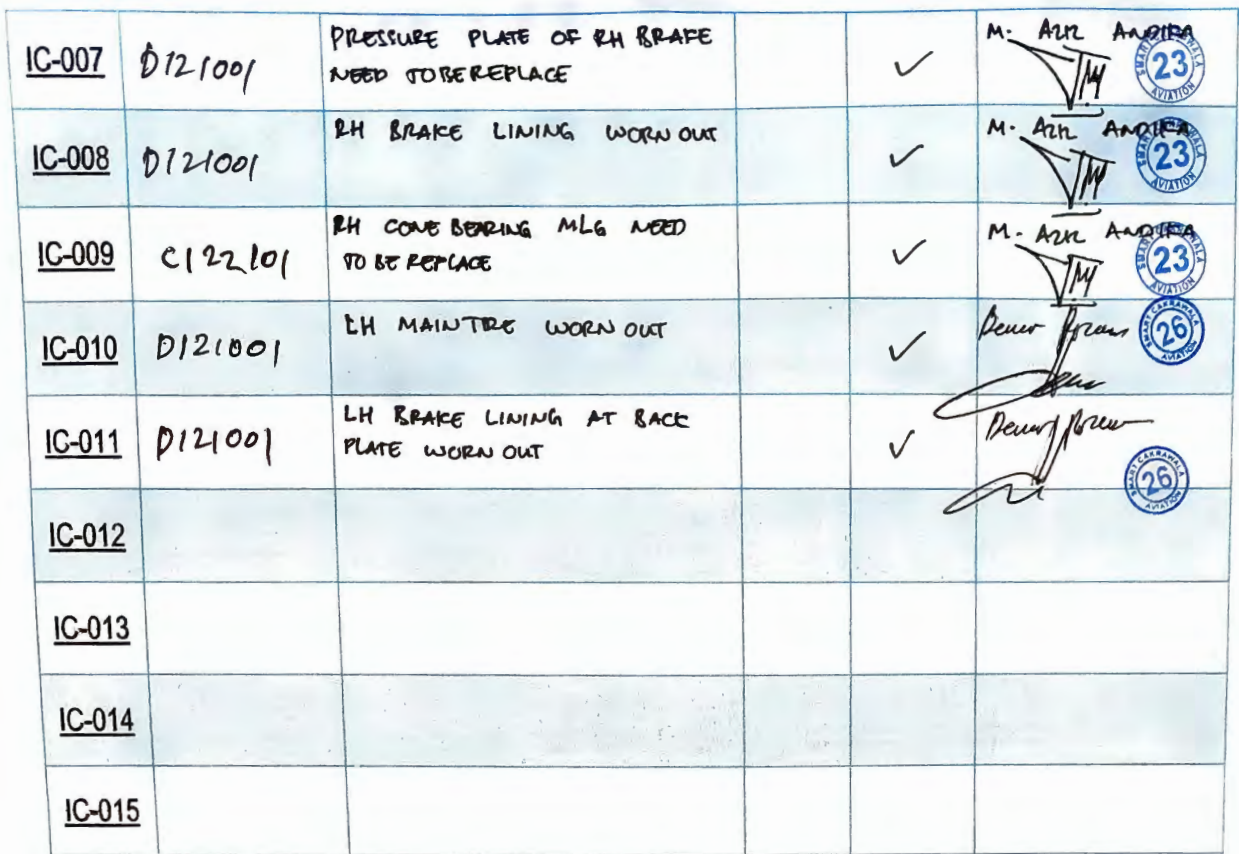 IC-007 D121001 PRESSURE PLATE OF RH BRAKE ✓ M. AZIZ ANDIKA
NEED TO BE REPLACE
SMART CAKRAWALA AVIATION 23
IC-008 D121001 RH BRAKE LINING WORN OUT ✓ M. AZIZ ANDIKA
SMART CAKRAWALA AVIATION 23
IC-009 C122101 RH CONE BEARING MLG NEED ✓ M. AZIZ ANDIKA
TO BE REPLACE
SMART CAKRAWALA AVIATION 23
IC-010 D121001 LH MAIN TIRE WORN OUT ✓
SMART CAKRAWALA AVIATION 26
IC-011 D121001 LH BRAKE LINING AT BACK ✓
PLATE WORN OUT
SMART CAKRAWALA AVIATION 26
IC-012
IC-013
IC-014
IC-015